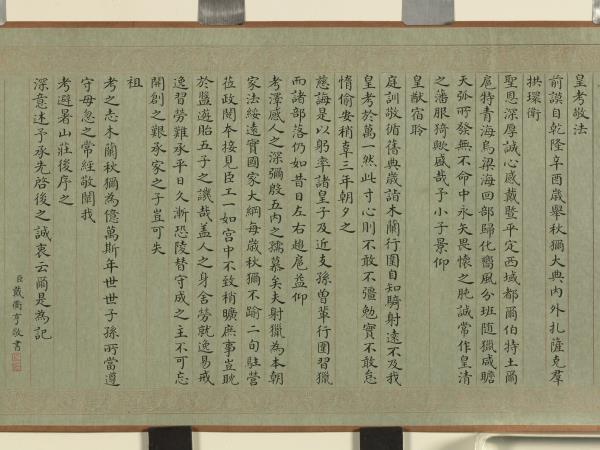 皇考敬法
前謨自乾隆辛酉歲舉秋獮大典內外扎薩克羣
拱環衛
聖恩深厚誠心感戴暨平定西域都爾伯特土爾
扈特青海烏梁海回部歸化嚮風分班隨獵咸瞻
天弧所發無不命中永矢畏懷之肫誠常作皇清
之藩服猗歟盛哉予小子景仰
皇猷宿聆
庭訓敬循舊典歲詣木蘭行圍自知騎射遠不及我
皇考於萬一然此寸心則不敢不彊勉實不敢怠
惰偷安稍辜三年朝夕之
慈誨是以躬率諸皇子及近支孫曾輩行圍習獵
而諸部落仍如昔日左右趨扈益仰
考澤感人之深彌殷五內之孺慕矣夫射獵為本朝
家法綏遠實國家大綱每歲秋獮不踰二旬駐營
莅政閱本接見臣工一如宮中不致稍曠庶事豈耽
於盤遊貽五子之譏哉蓋人之身舍勞就逸易戒
逸習勞難承平日久漸恐陵替守成之主不可忘
開創之艱承家之子豈可失
祖
考之志木蘭秋獮為億萬斯年世世子孫所當遵
守毋忽之常經敬閱我
考避暑山莊後序之
深意述予承先啓後之誠衷云爾是為記
臣戴衢亨敬書